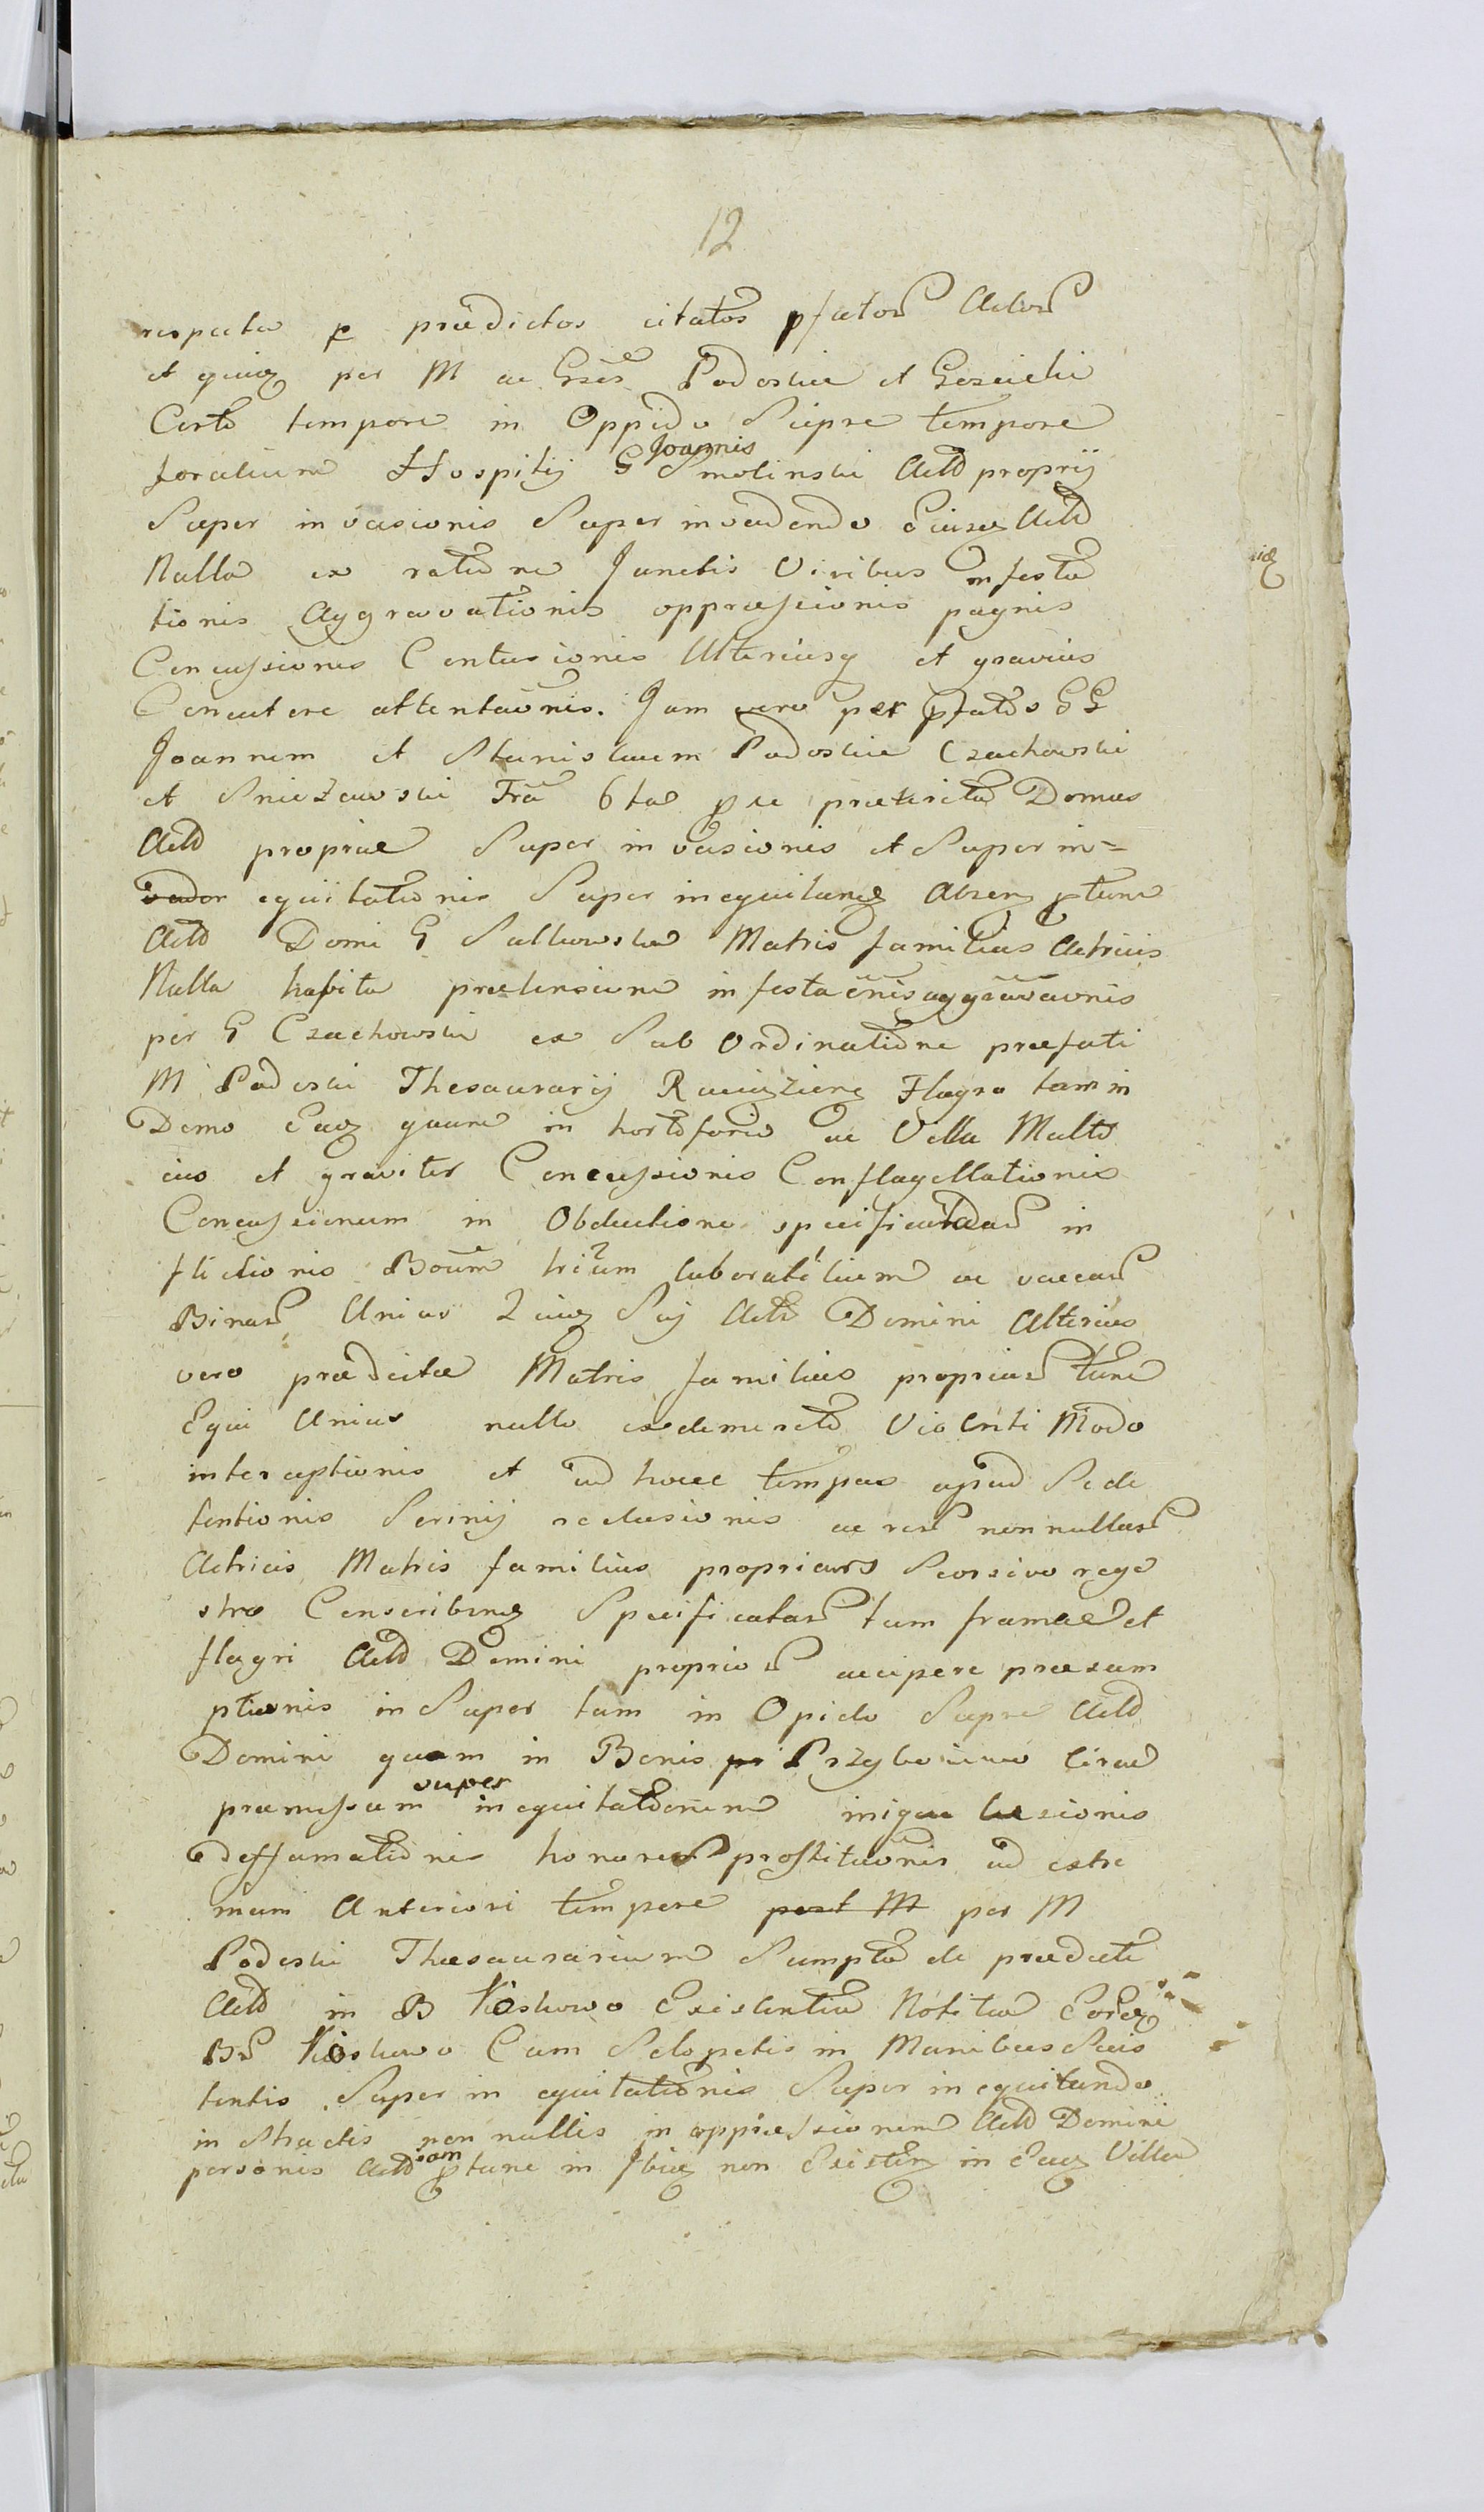 12
respectu p prædictos citatos pfator Actor
et quivz per M ac Grses Podoskie et Gozeicki
Certo tempore in Oppido Siepre tempore
foralium Hospitij G Joannis Smolinski Actd proprij
Super invasionis Super invadendo Eiusq Actd
Nulla ex ratione Junctis Viribus infesta
tionis Aggravationis oppræssionis pugnis
Concussionis Contusionis Ulteriusq et gravius
Concutere attentaonis. Jam vero per pfatos GG
Joannem et Stanislaum Podoskie Czachowski
et Sniezawski Fra 6ta pæ præterita Domus
Actd propriæ Super invasionis et Super in=
vadon equitationis Super inequitanz Absenz ptunc
Actd Domi G Sulkowska Matris familias Actricis
Nulla habita prætensione infestaonis aggravaonis
per G Czachowski ex Sub Ordinatione præfati
M Podoski Thesaurarij Flagro tam in
Domo Euz quam in horto foris ac Villa Multo
ies et graviter Concussionis Conflagellationis
Concussionum in Obductione specificandar in
flictionis Boum trium laboratilium ac vaccar
Binar Unius Actd Domini Alterius
vero prædictæ Matris familias propriar tunc
Equi Unius nullo ex demerito Violenti Modo
interceptionis et ad hocce tempus apud Se de
tentionis Scrinij reclusionis ac rer nonnullar
Actricis Matris familias propriars Seorsivo rege
stro Conscribenz Specificatar tum frameæ et
flagri Actd Domini proprior accipere præsum
ptionis in Super tam in Opido Siepre Actd
Domini quam in Bonis pr Przyboiewo Circa
præmissam super inequitationem iniquæ læsionis
deffamationis honoris prostituonis ad extre
mum Anteriori tempore post M per M
Podoski Thesaurarium Sumpta de prædicti
Actd in B Kioskowo Existentia Notitia Eorz
Br Kioskowo Cum Sclopetis in Manibus Suis
tentis Super in equitationis Super in equitando
in Stractis non nullis in oppræssionem Actd Domini
personis Actd sam ptunc in Ibiz non Existenz in Euz Villa